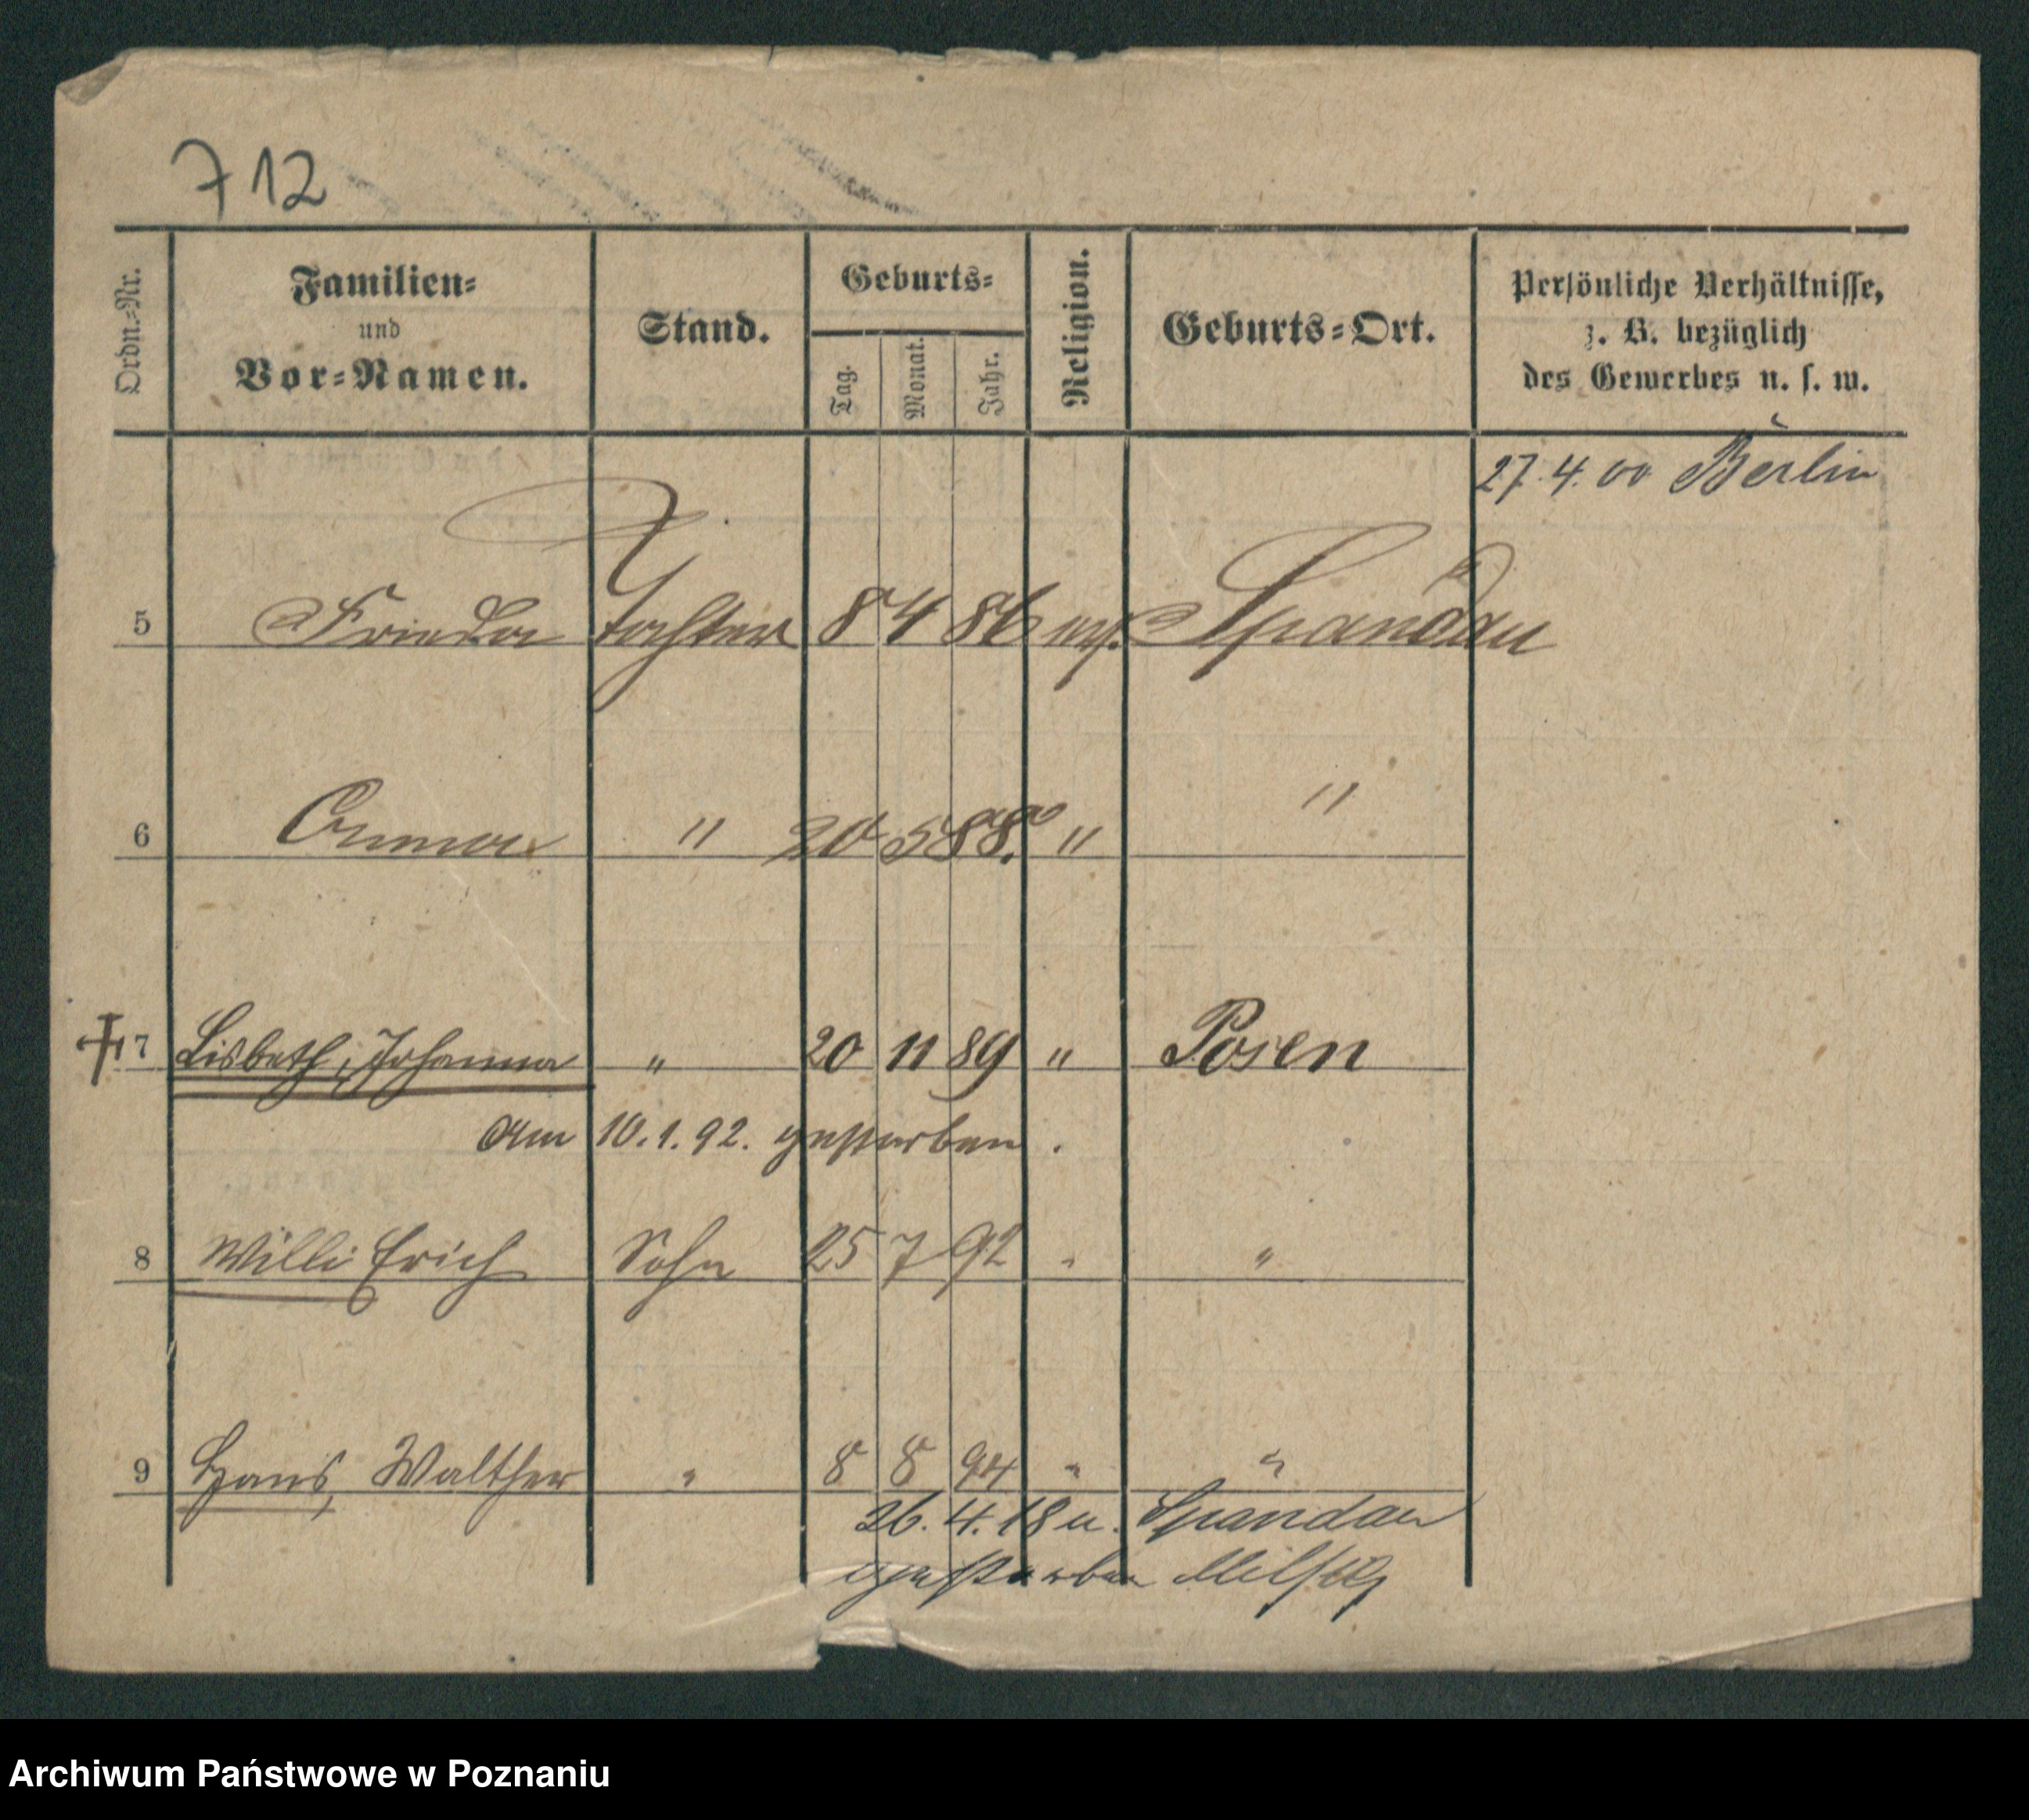 712
Ordn.-Nr. Familien- und Vor-Namen. Stand. Geburts- Tag. Monat. Jahr. Religion. Geburts-Ort. Persönliche Verhältnisse, z. B. bezüglich des Gewerbes u. s. w.
27.4.00 Berlin
5 Frieda Tochter 8 4 86 ev. Spandau
6 " 20 5 88. " "
7 Lisbeth, Johanna " 20 11 89 " Posen
Am 10.1.92. gestorben.
8 Willi Erich Sohn 25 7 92 " "
9 Hans, Walther " 8 8 94 " "
26.4.18 u. Spandau
gestorben
Archiwum Państwowe w Poznaniu